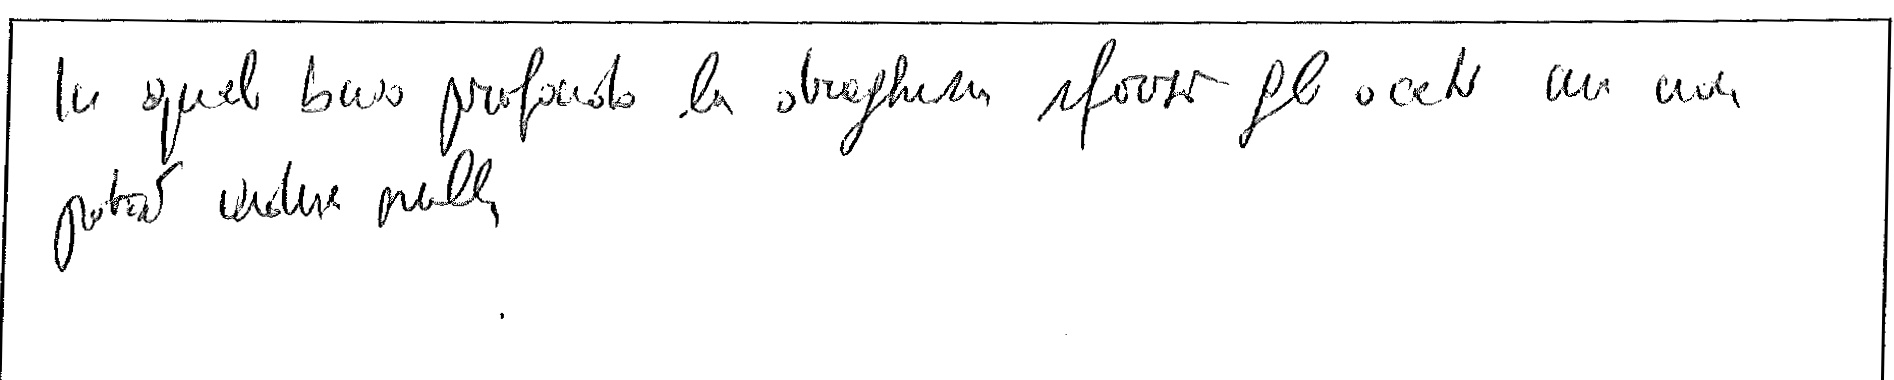 In quel buco profondo la draghessa sforzò gli occhi ma non
poteva vedere nulla